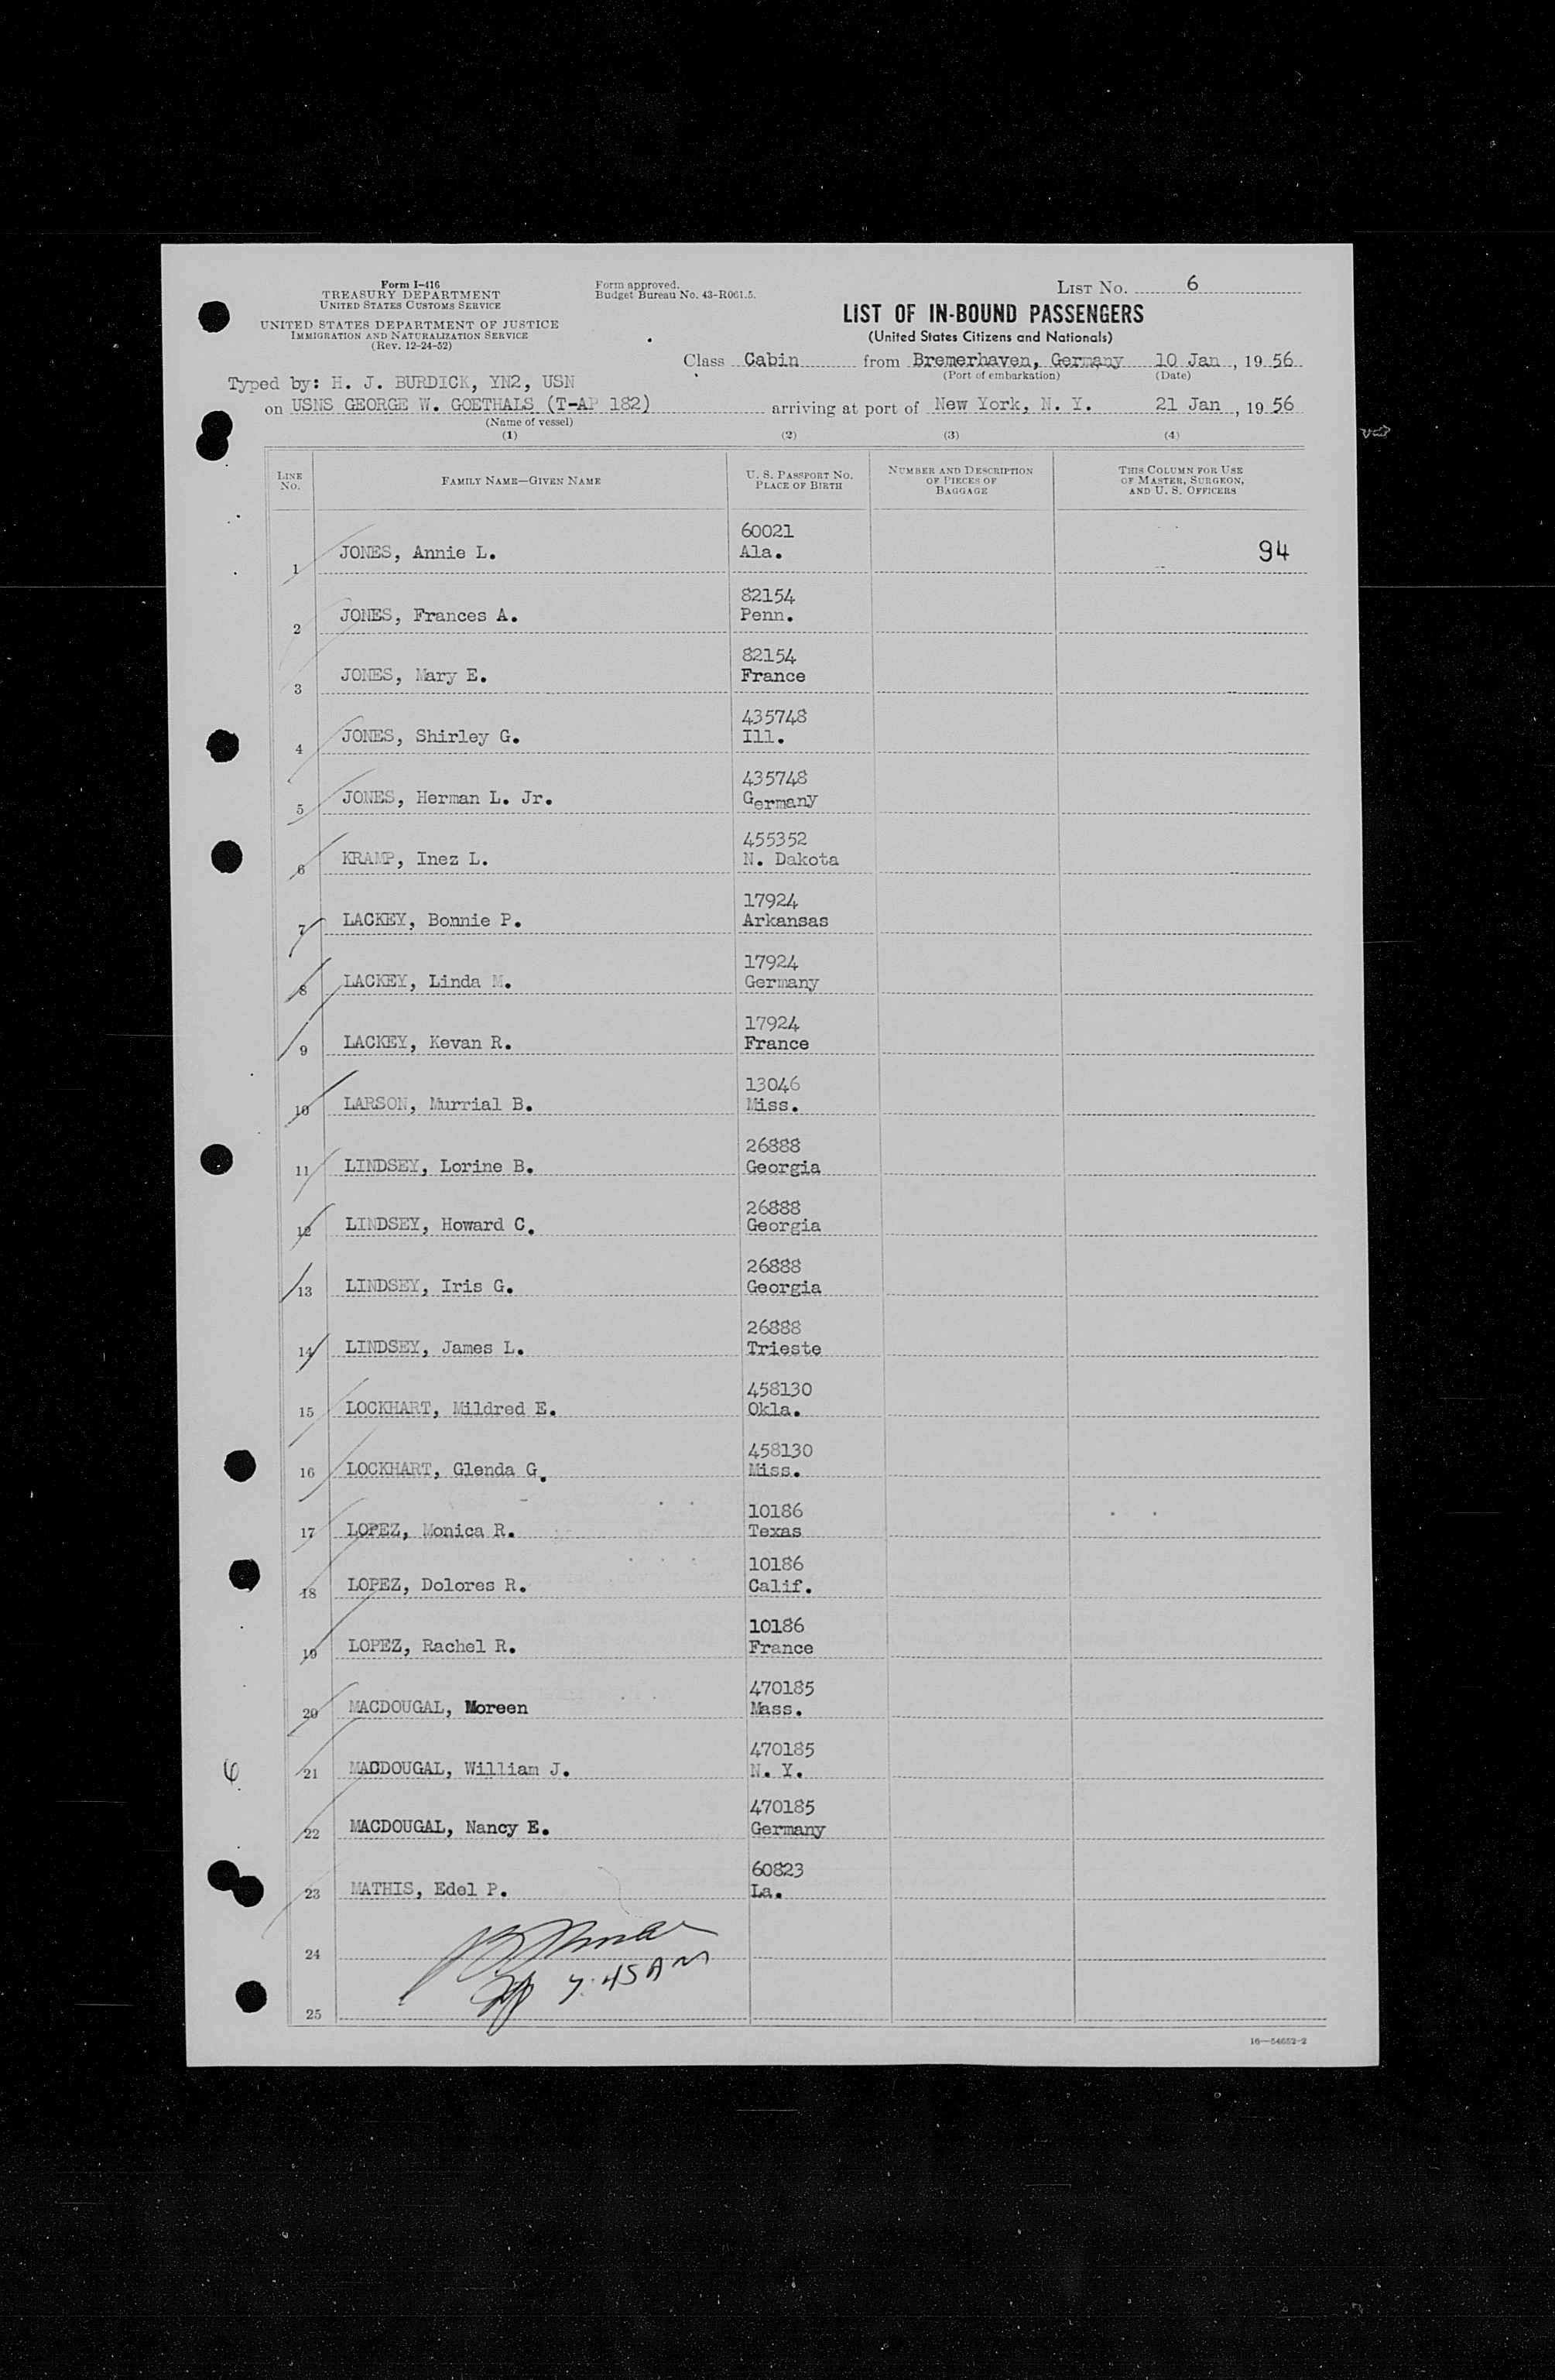 Form I-416
TREASURY DEPARTMENT
UNITED STATES CUSTOMS SERVICE
UNITED STATES DEPARTMENT OF JUSTICE
IMMIGRATION AND NATURALIZATION SERVICE
(Rev. 12-24-52)
Form approved.
Budget Bureau No. 43-R061.5.
LIST NO. 6
LIST OF IN-BOUND PASSENGERS
(United States Citizens and Nationals)
Class Cabin from Bremerhaven, Germany 10 Jan, 1956
(Port of embarkation) (Date)
Typed by: H. J. BURDICK, YN2, USN
on USNS GEORGE W. GOETHALS (T-AP 182) arriving at port of New York, N. Y. 21 Jan, 1956
(Name of vessel)
(1) (2) (3) (4)
LINE NO. FAMILY NAME—GIVEN NAME U. S. PASSPORT NO. PLACE OF BIRTH NUMBER AND DESCRIPTION OF PIECES OF BAGGAGE THIS COLUMN FOR USE OF MASTER, SURGEON, AND U. S. OFFICERS
60021
1 JONES, Annie L. Ala. 94
82154
2 JONES, Frances A. Penn.
82154
3 JONES, Mary E. France
435748
4 JONES, Shirley G. Ill.
435748
5 JONES, Herman L. Jr. Germany
455352
6 KRAMP, Inez L. N. Dakota
17924
7 LACKEY, Bonnie P. Arkansas
17924
8 LACKEY, Linda M. Germany
17924
9 LACKEY, Kevan R. France
13046
10 LARSON, Murrial B. Miss.
26888
11 LINDSEY, Lorine B. Georgia
26888
12 LINDSEY, Howard C. Georgia
26888
13 LINDSEY, Iris G. Georgia
26888
14 LINDSEY, James L. Trieste
458130
15 LOCKHART, Mildred E. Okla.
458130
16 LOCKHART, Glenda G. Miss.
10186
17 LOPEZ, Monica R. Texas
10186
18 LOPEZ, Dolores R. Calif.
10186
19 LOPEZ, Rachel R. France
470185
20 MACDOUGAL, Moreen Mass.
470185
6 21 MACDOUGAL, William J. N. Y.
470185
22 MACDOUGAL, Nancy E. Germany
60823
23 MATHIS, Edel P. La.
24
7:45 AM
25
16—54652-2